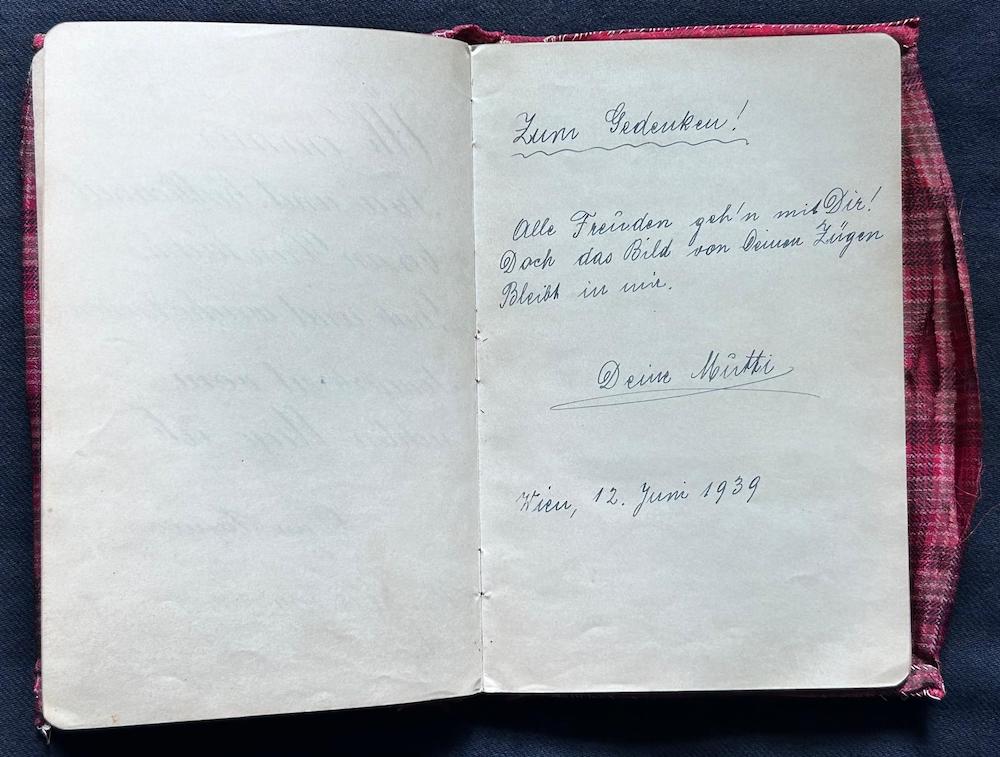 Zum Gedenken!
Alle Freuden geh'n mit Dir!
Doch das Bild von Deinen Zügen
Bleibt in mir.
Deine Mutti
Wien, 12. Juni 1939